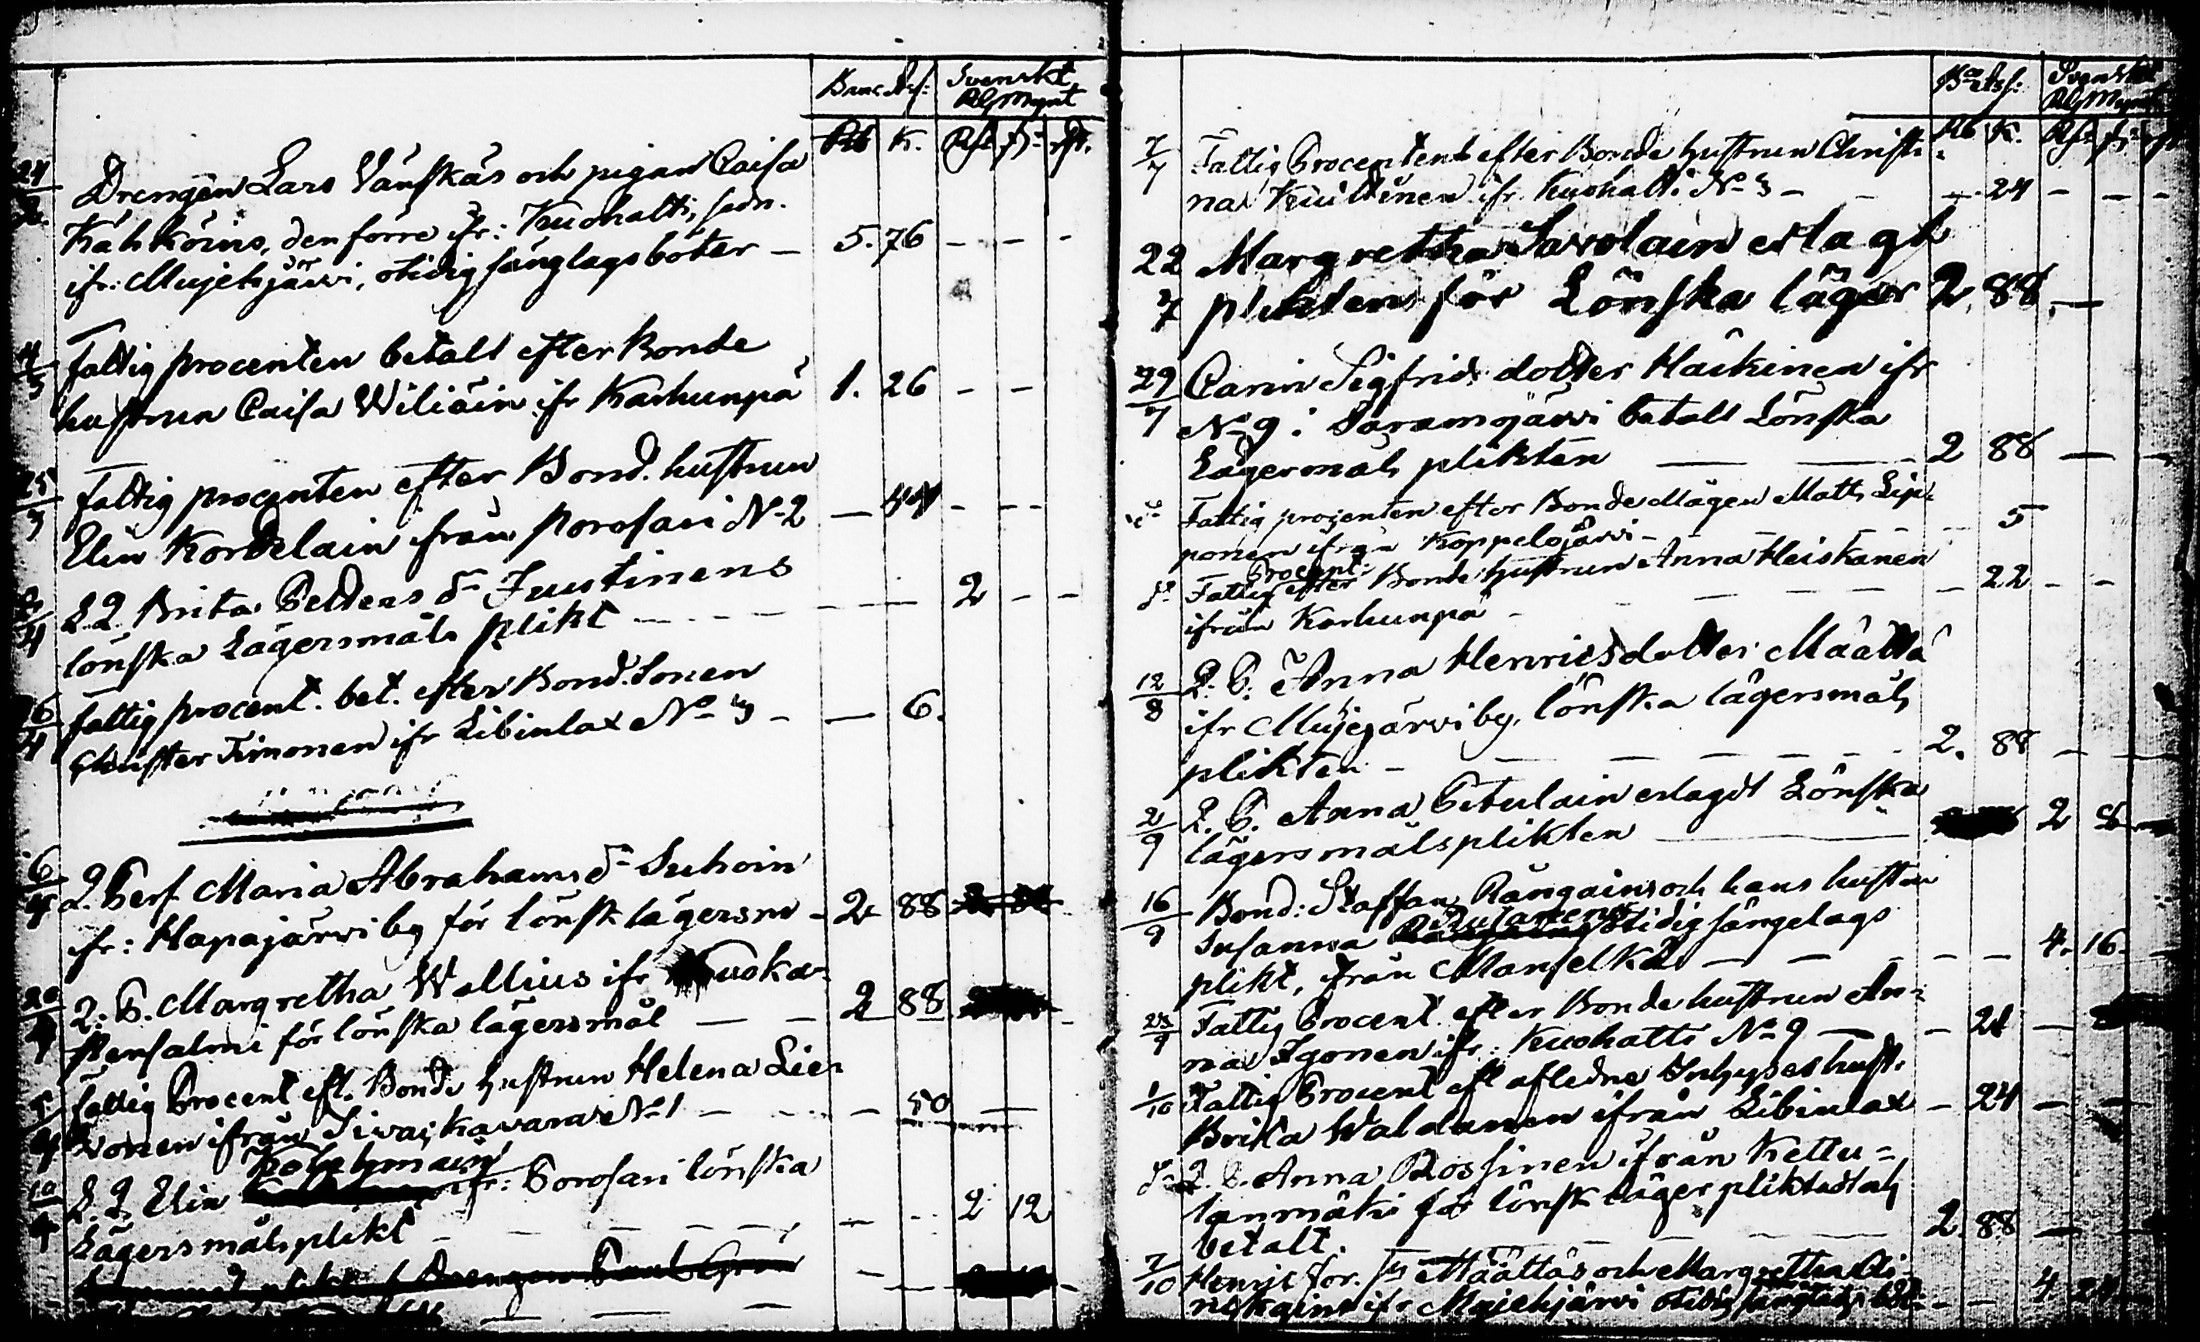 Banc Ass: Svenskt
RG Mynt
Rb K. Rst ß rst.
24/2 Drengen Lars Vänskäs och pigan Caisa
Kähköins, den förre ifr: Kuohatti, sedn.
ifr: Mujehjärvi, otidig sänglagsböter — 5. 76 - - -
4/3 Fattig procenten betalt efter Bonde
hustrun Caisa Wiliäin ifr Karhunpä 1. 26 - -
25/3 Fattig procenten efter Bond. hustrun
Elin Kordelain från Porosari N-2 — 44 - - -
L. Q. Brita Beltens dr Juustinens
lönska Lägersmåls plikt — 2 - -
16/4 fattig procent. bet. efter Bond. Sonen
Christer Timonen ifr Libinlax No 3 - — 6.
6/4 Q. Pers. Maria Abrahams dr Suhoin
ifr: Hapajärvi by för lönsk lägersm - 2 88
20/4 Q: P. Margretha Wallius ifr Kuoka-
stensalmi för lönska lägersmål — — 2 88
fattig Procent eft. Bonde hustrun Helena Lie-
vonen ifrån Sivackavara No 1 — 50 —
10/4 L. Q. Elin Kolehmain ifr: Porosari lönska
Lägersmåls plikt - — — 2 12
Drengen Paul
Bco Ass: Svenskt
RG Mynt
Rb K. Rst ß
7/7 Fattig Procenten efter Bonde hustrun Christi-
na Kuittinen ifr. Kuohatti No 3 - - 24 - - -
22/7 Margretha Savolain erlagt
plikten för Lönska läger 2. 88. —
29/7 Carin Sigfrids dotter Häikinen ifr
No 9 i Saramojärvi betalt Lönska
Lägersmåls plikten — 2 88 —
do Fattig procenten efter Bonde Mågen Matts Lip-
ponen ifrån Koppelojärvi - 5
do Fattig Procent: efter Bonde hustrun Anna Heiskanen
ifrån Karhunpä - — 22 - -
12/8 Q. P. Anna Henricsdotter Määttä
ifr Mujejärvi by, lönska lägersmåls
plikten - — 2. 88 —
2/9 Q. P. Anna Petulain erlagdt Lönska
lägersmålsplikten — 2 8
16/9 Bond: Staffan Rångains och hans hustru
Susanna otidig sängelags
plikt, från Manselkä — 4. 16.
Fattig Procent. efter Bonde hustrun An-
na Igonen ifr: Kuohatti No 9 — - 24 —
1/10 Fattig Procent eft aflidne Inhyses hust.
Brita Waldanen ifrån Libinlax - 24 —
do Q. P. Anna Rossinen ifrån Keltu-
lanmäki för lönsk läger plikten
betalt. — 2. 88 —
7/10 Henric Määttäs och Margretha
ifr Mujehjärvi otidig — 4 24